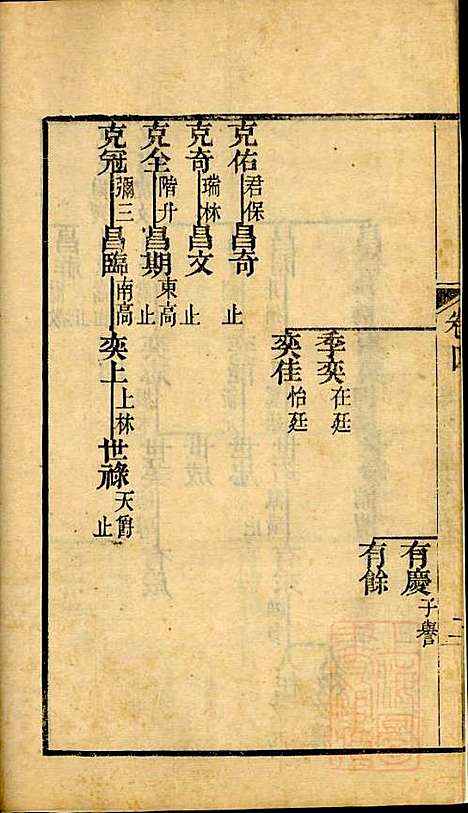 卷四
二
有慶 子譽
有餘
季奕 在廷
奕佳 怡廷
克佑 君保 昌奇 止
克奇 瑞林 昌文 止
克全 階升 昌期 東高 止
克冠 彌三 昌臨 南高 奕上 上林 世祿 天爵 止